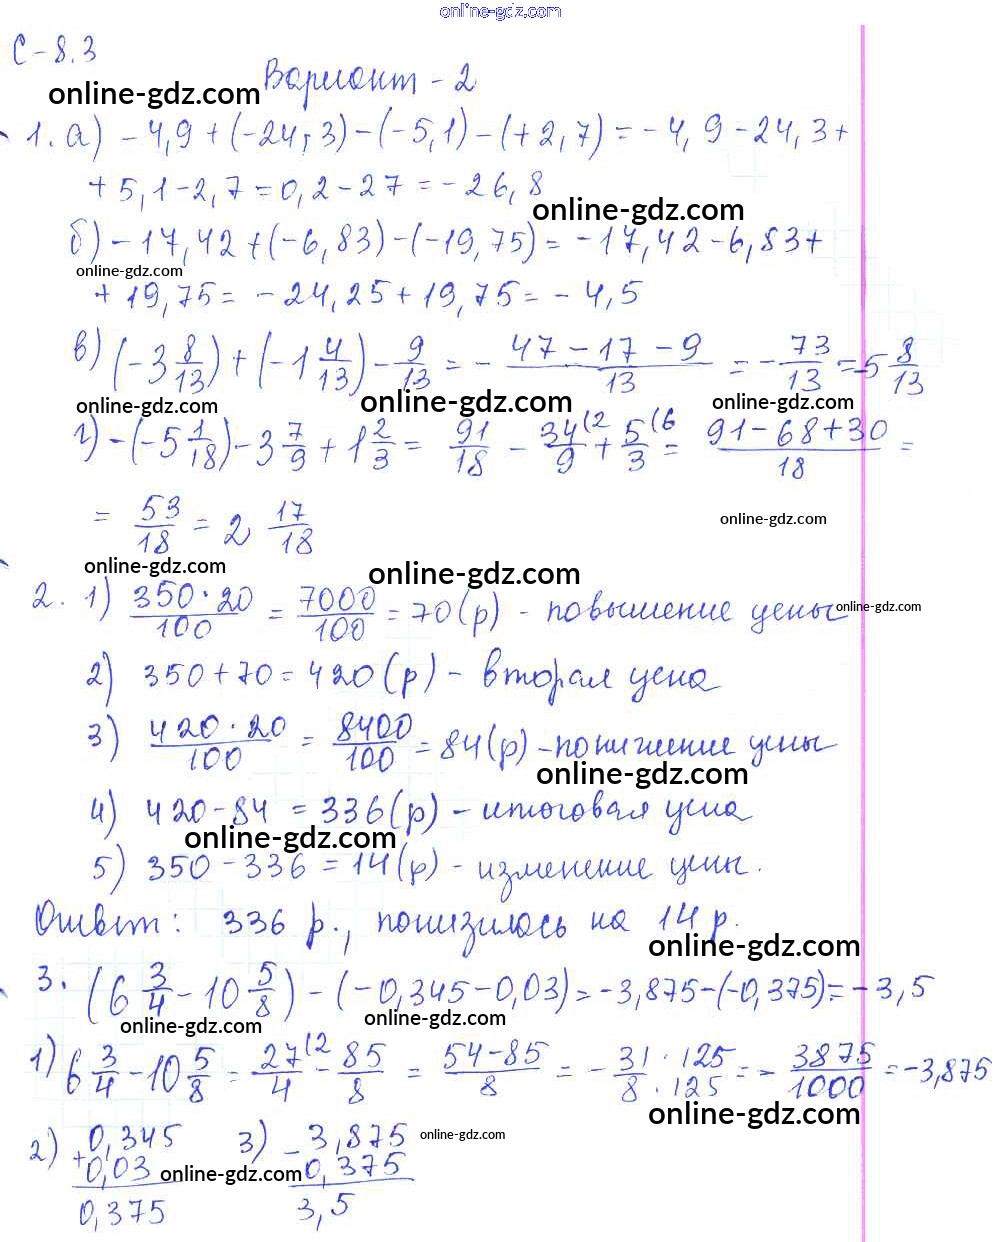 online-gdz.com
С-8.3
Вариант - 2
online-gdz.com
1. а) - 4,9 + (-24,3) - (-5,1) - (+2,7) = - 4,9 - 24,3 +
+ 5,1 - 2,7 = 0,2 - 27 = - 26,8
online-gdz.com
б) - 17,42 + (-6,83) - (-19,75) = - 17,42 - 6,83 +
online-gdz.com
+ 19,75 = - 24,25 + 19,75 = - 4,5
в) (-3 8/13) + (-1 4/13) - 9/13 = - 47 - 17 - 9/13 = - 73/13 = -5 8/13
online-gdz.com online-gdz.com online-gdz.com
г) - (-5 1/18) - 3 7/9 + 1 2/3 = 91/18 - 34(2/9 + 5(6/3 = 91 - 68 + 30/18 =
= 53/18 = 2 17/18
online-gdz.com
online-gdz.com online-gdz.com
2. 1) 350 · 20/100 = 7000/100 = 70 (р) - повышение цены
online-gdz.com
2) 350 + 70 = 420 (р) - вторая цена
3) 420 · 20/100 = 8400/100 = 84 (р) - понижение цены
online-gdz.com
4) 420 - 84 = 336 (р) - итоговая цена
online-gdz.com
5) 350 - 336 = 14 (р) - изменение цены.
Ответ: 336 р., понизилась на 14 р.
online-gdz.com
3. (6 3/4 - 10 5/8) - (-0,345 - 0,03) = - 3,875 - (-0,375) = - 3,5
online-gdz.com online-gdz.com
1) 6 3/4 - 10 5/8 = 27(2/4 - 85/8 = 54 - 85/8 = - 31 · 125/8 · 125 = - 3875/1000 = -3,875
online-gdz.com
2) + 0,345 3) - 3,875 online-gdz.com
0,03 online-gdz.com 0,375 online-gdz.com
0,375 3,5